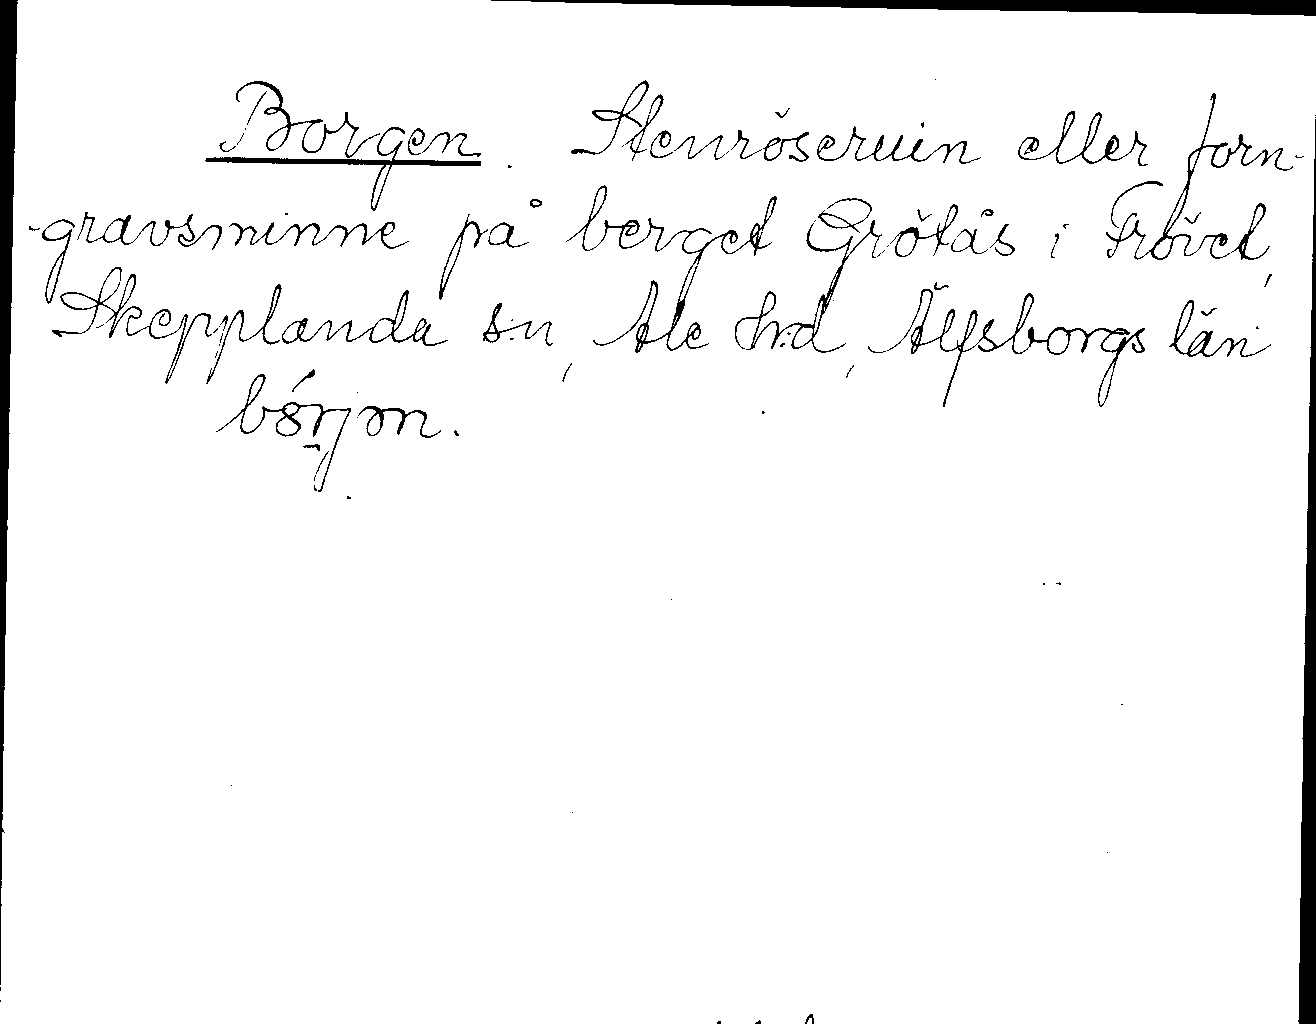 Borgen. Stenröseruin eller forn-
-gravsminne på berget Grötås i Frövet,
Skepplanda s:n, Ale h:d, Älfsborgs län